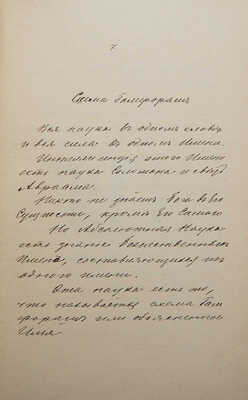 7.
Схема Гамфораша
Вся наука въ одномъ словѣ
и вся сила въ одномъ Имени.
этого Имени
есть наука Соломона и свѣтъ
Авраама.
Никто не знаетъ Бога въ Его
Сущности, кромѣ Его Самого
Но Абсолютная Наука
есть знаніе Божественнаго
Имени, составляющагося изъ
одного имени.
Эта наука есть то,
что называется схема Гам
форашъ или объясненное
Имя